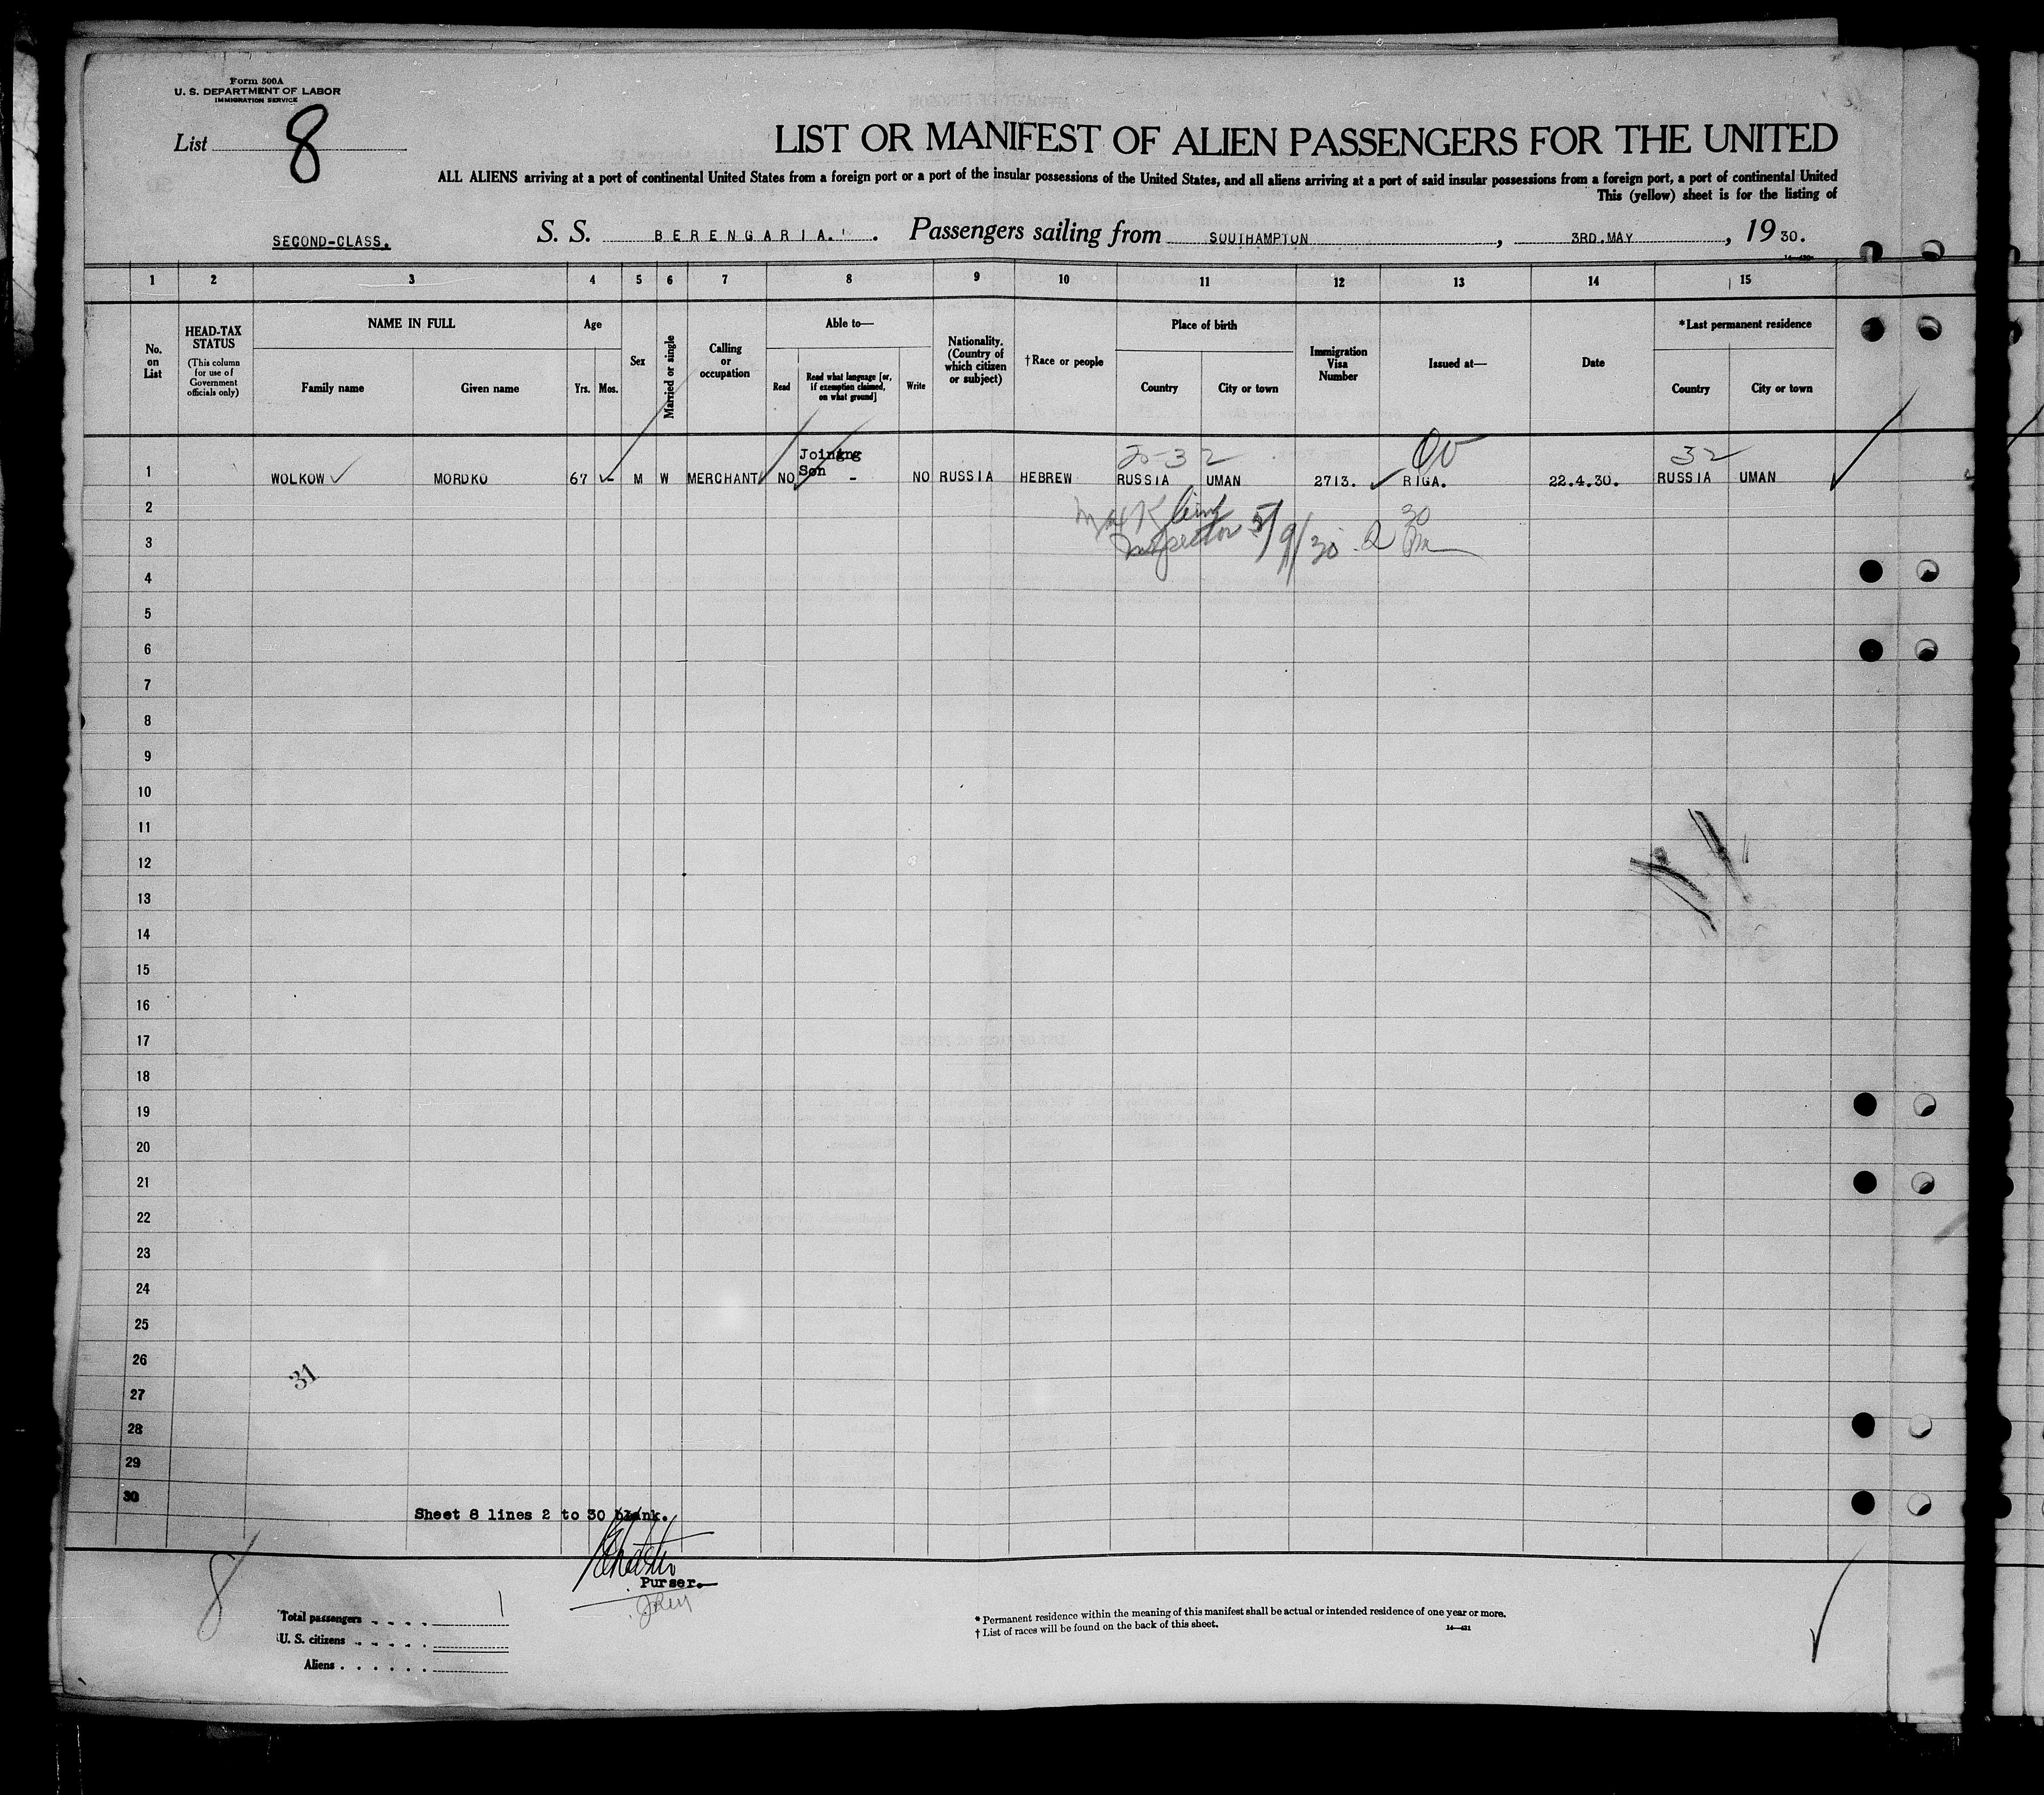 Form 500A
U. S. DEPARTMENT OF LABOR
IMMIGRATION SERVICE
List 8
LIST OR MANIFEST OF ALIEN PASSENGERS FOR THE UNITED
ALL ALIENS arriving at a port of continental United States from a foreign port or a port of the insular possessions of the United States, and all aliens arriving at a port of said insular possessions from a foreign port, a port of continental United
This (yellow) sheet is for the listing of
SECOND-CLASS. S. S. BERENGARIA. Passengers sailing from SOUTHAMPTON, 3RD.MAY, 1930.
1 2 3 4 5 6 7 8 9 10 11 12 13 14 15
No. on List
HEAD-TAX STATUS
(This column for use of Government officials only)
NAME IN FULL
Family name
Given name
Age
Yrs. Mos.
Sex
Married or single
Calling or occupation
Able to—
Read
Read what language [or, if exemption claimed, on what ground]
Write
Nationality. (Country of which citizen or subject)
†Race or people
Place of birth
Country
City or town
Immigration Visa Number
Issued at—
Date
*Last permanent residence
Country
City or town
Joining
Son
32
1 WOLKOW MORDKO 67 - M W MERCHANT NO - NO RUSSIA HEBREW RUSSIA UMAN 2713. RIGA. 22.4.30. RUSSIA UMAN
2
Inspector 5/9/30 2 30 Pm
3
4
5
6
7
8
9
10
11
12
13
14
15
16
17
18
19
20
21
22
23
24
25
26
31
27
28
29
30
Sheet 8 lines 2 to 30 blank.
Purser.
8
Total passengers 1
U. S. citizens
Aliens
* Permanent residence within the meaning of this manifest shall be actual or intended residence of one year or more.
† List of races will be found on the back of this sheet.
14—431